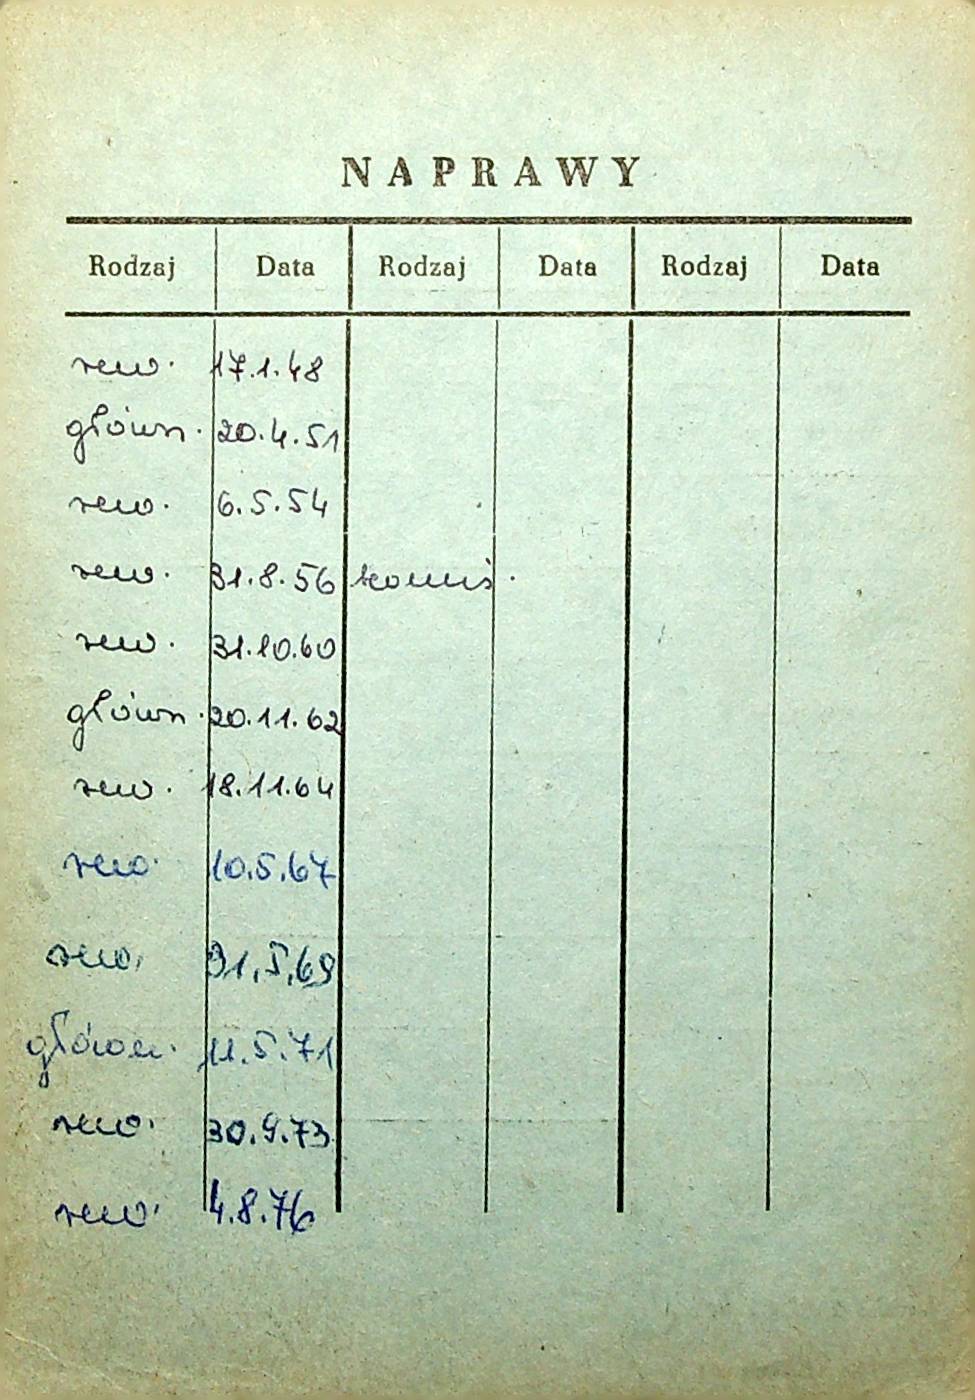 NAPRAWY
Rodzaj Data Rodzaj Data Rodzaj Data
rew. 17.1.48
główn. 20.4.51
rew. 6.5.54
rew. 31.8.56 komis.
rew. 31.10.60
główn. 20.11.62
rew. 18.11.64
rew. 10.5.67
rew. 31.5.69
główn. 11.5.71
rew. 30.9.73
rew. 4.8.76